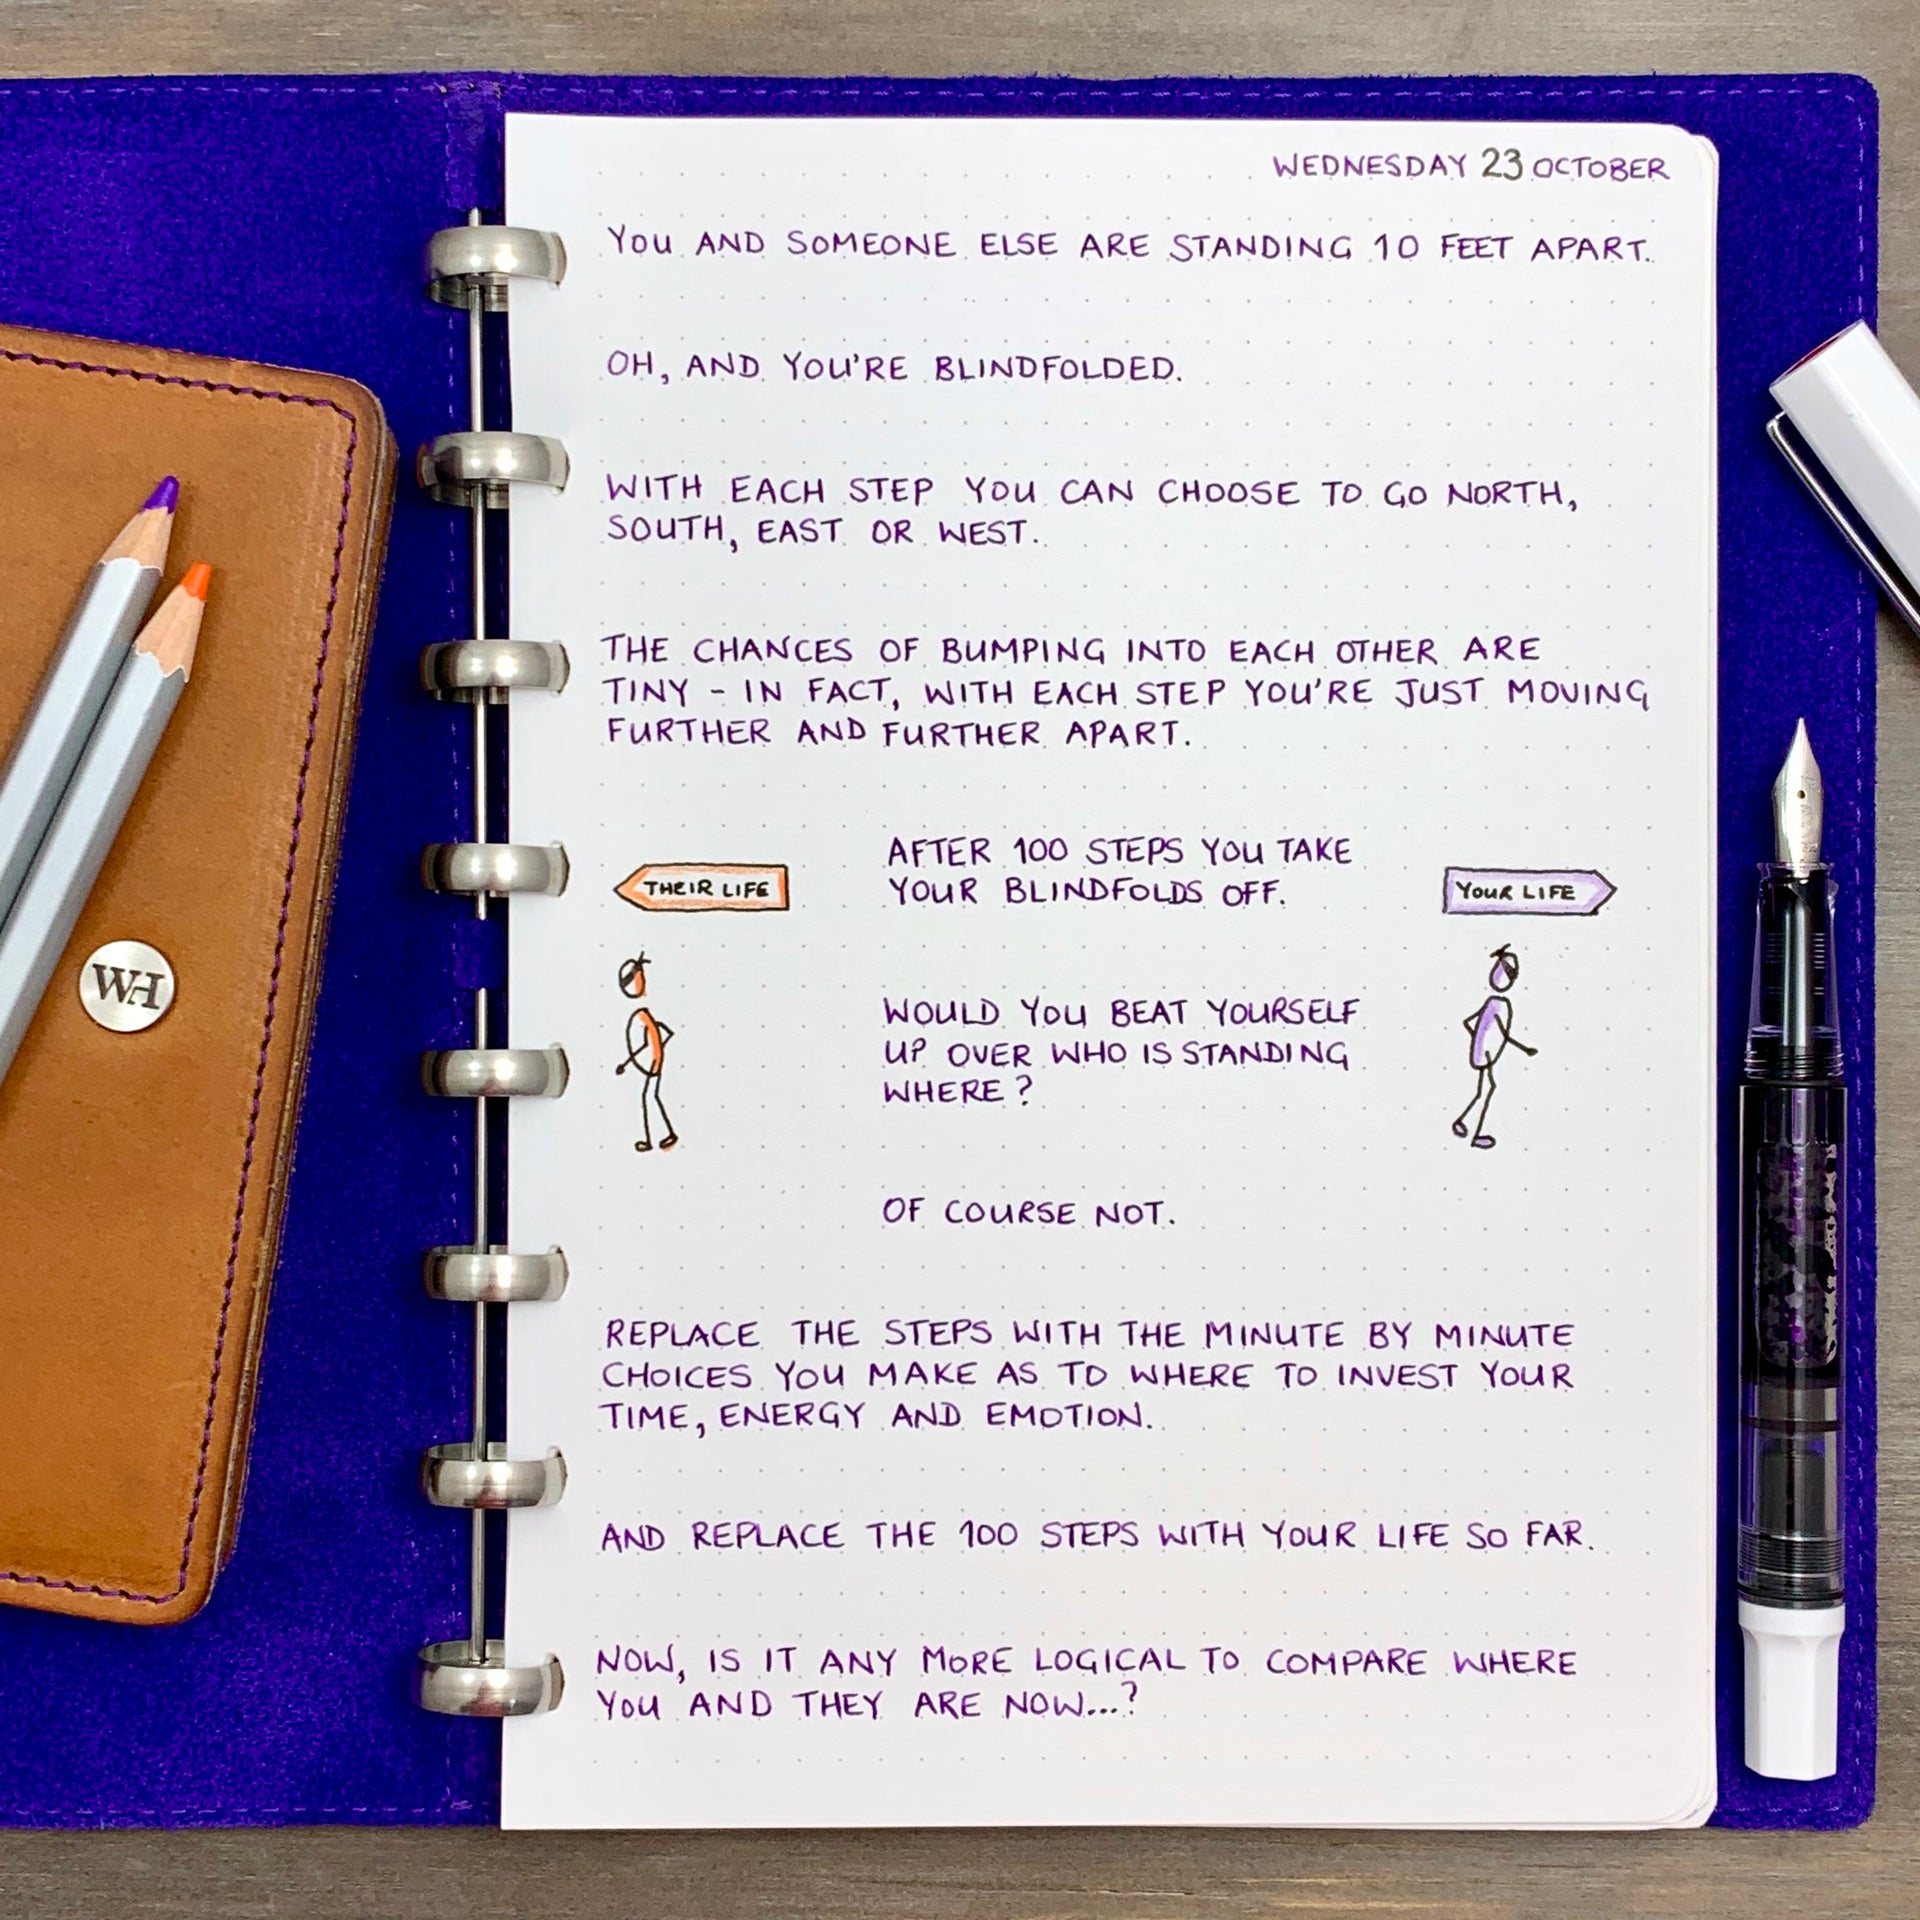 WEDNESDAY 23 OCTOBER
YOU AND SOMEONE ELSE ARE STANDING 10 FEET APART.
OH, AND YOU'RE BLINDFOLDED.
WITH EACH STEP YOU CAN CHOOSE TO GO NORTH,
SOUTH, EAST OR WEST.
THE CHANCES OF BUMPING INTO EACH OTHER ARE
TINY - IN FACT, WITH EACH STEP YOU'RE JUST MOVING
FURTHER AND FURTHER APART.
THEIR LIFE
AFTER 100 STEPS YOU TAKE
YOUR BLINDFOLDS OFF.
YOUR LIFE
WOULD YOU BEAT YOURSELF
UP OVER WHO IS STANDING
WHERE?
OF COURSE NOT.
REPLACE THE STEPS WITH THE MINUTE BY MINUTE
CHOICES YOU MAKE AS TO WHERE TO INVEST YOUR
TIME, ENERGY AND EMOTION.
AND REPLACE THE 100 STEPS WITH YOUR LIFE SO FAR.
NOW, IS IT ANY MORE LOGICAL TO COMPARE WHERE
YOU AND THEY ARE NOW...?
WH